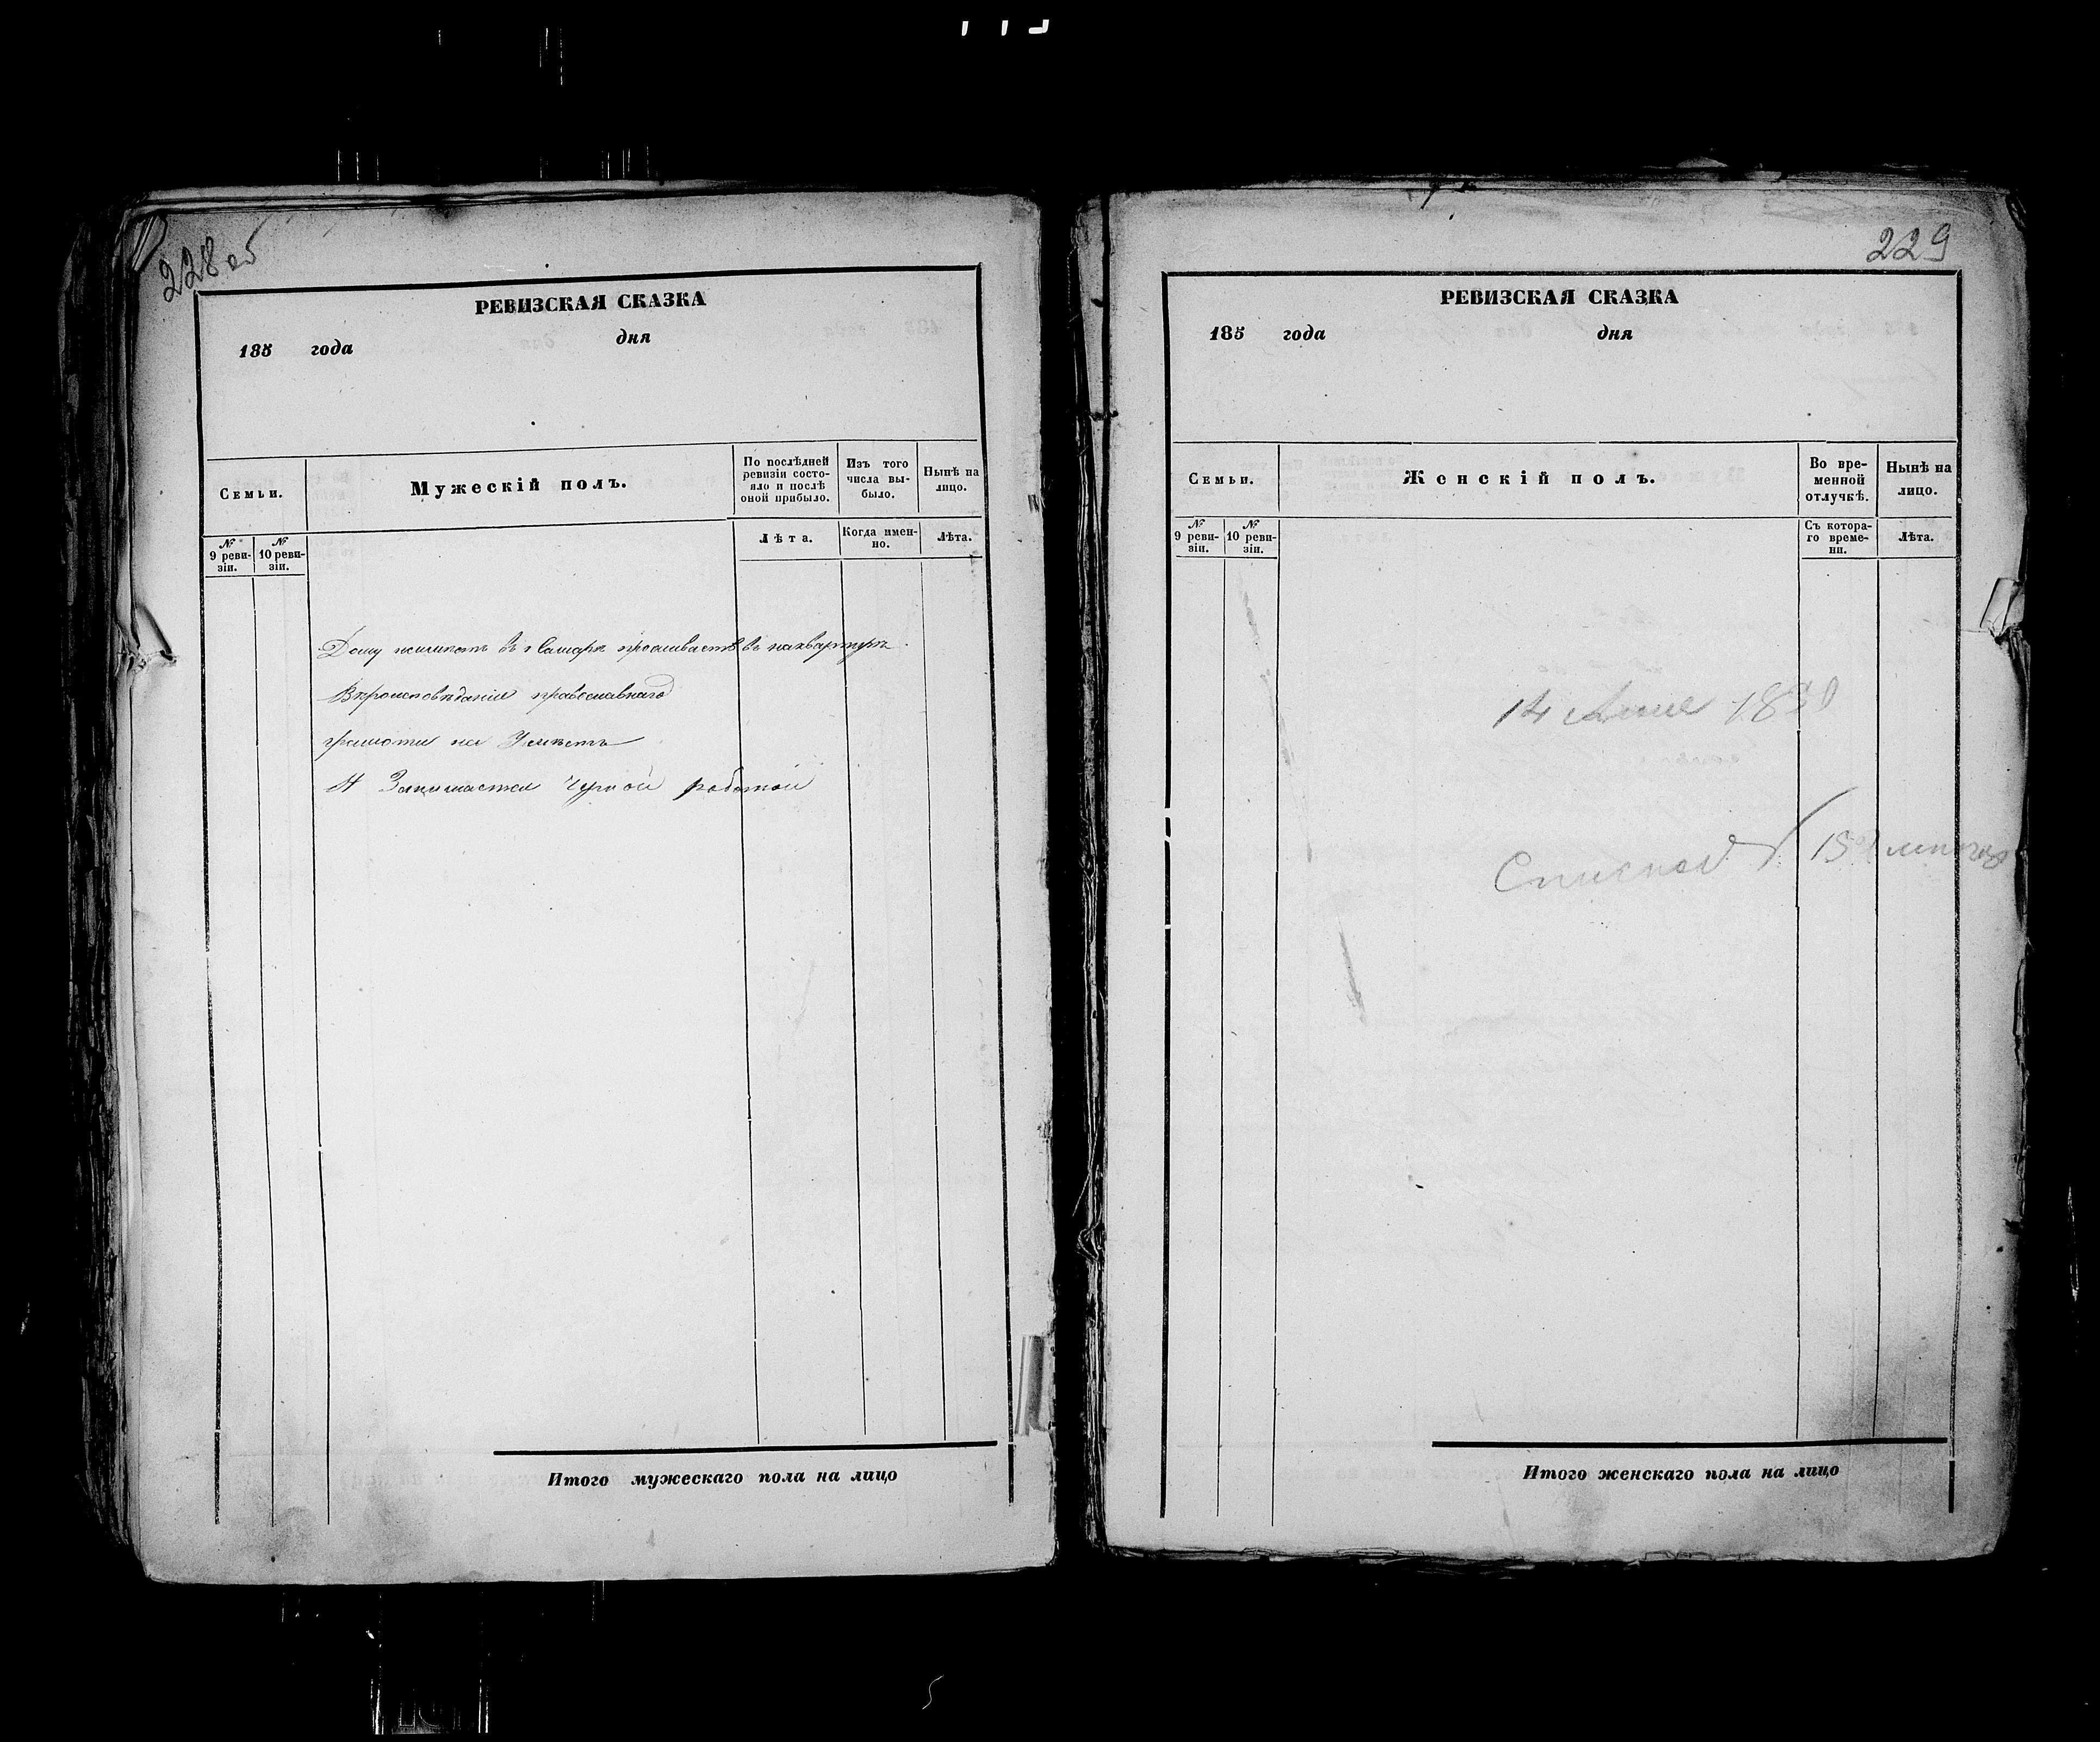 228 об
РЕВИЗСКАЯ СКАЗКА
185 года дня
Семьи.
Мужескій полъ.
По послѣдней ревизіи состояло и послѣ оной прибыло.
Изъ того числа выбыло.
Нынѣ на лицо.
№ 9 ревизіи.
№ 10 ревизіи.
Лѣта.
Когда именно.
Лѣта.
Дому неимѣетъ въ г Самарѣ проживаетъ въ на квартирѣ.
Вѣроисповѣданія православнаго
грамоти не Умѣетъ
И Занимается Чорной работой
Итого мужескаго пола на лицо
229
РЕВИЗСКАЯ СКАЗКА
185 года дня
Семьи.
Женскій полъ.
Во временной отлучкѣ.
Нынѣ на лицо.
№ 9 ревизіи.
№ 10 ревизіи.
Съ котораго времени.
Лѣта.
14
Списков
Итого женскаго пола на лицо